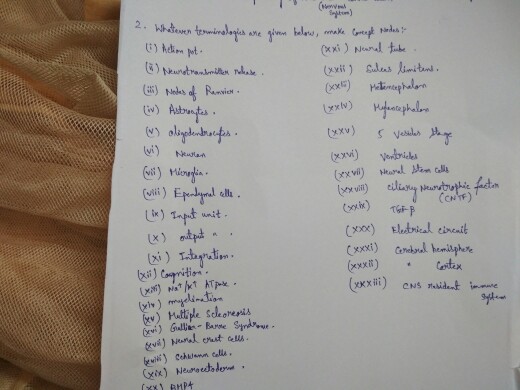 (Nervous
System)
2. Whatever terminologies are given below, make Concept Nodes:-
(i) Action pot.
(ii) Neurotransmitter release.
(iii) Nodes of Ranvier.
(iv) Astrocytes.
(v) oligodendrocytes.
(vi) Neuron
(vii) Microglia.
(viii) Ependymal cells.
(ix) Input unit.
(x) output " .
(xi) Integration.
(xii) Cognition.
(xiii) Na+/K+ ATpase.
(xiv) myelination
(xv) Multiple Sclerosis
(xvi) Gullian-Barre Syndrome.
(xvii) Neural crest cells.
(xviii) Schwann cells.
(xix) Neuroectoderm.
(xx) BMP4
(xxi) Neural tube.
(xxii) Sulcus limitans.
(xxiii) Metencephalon
(xxiv) Myelencephalon
(xxv) 5 Vesicles Stage
(xxvi) Ventricles
(xxvii) Neural Stem cells
(xxviii) Ciliary Neurotrophic factor
(CNTF)
(xxix) TGF-β
(xxx) Electrical circuit
(xxxi) Cerebral hemisphere
(xxxii) " Cortex
(xxxiii) CNS resident immune
System